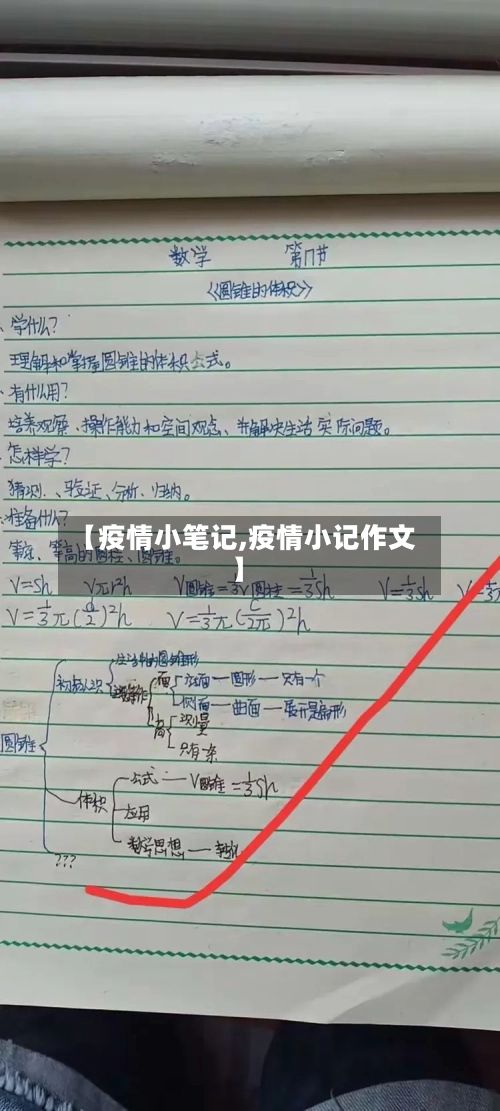 数学 第 节
《圆锥的体积》
学什么?
理解和掌握圆锥的体积公式。
有什么用?
培养观察、操作能力和空间观念、并解决生活实际问题。
怎样学?
猜测、验证、分析、归纳。
准备什么?
等底、等高的圆柱、圆锥。
【疫情小笔记,疫情小记作文
】
V=Sh Vπr²h V圆锥=⅓V圆柱=⅓Sh V=⅓Sh V=⅓
V=⅓π(d/2)²h V=⅓π(C/2π)²h
生活中的圆锥形
初步认识 操作 面 底面—圆形—只有一个
侧面—曲面—展开是扇形
高 测量
只有一条
圆锥
公式—V圆锥=⅓Sh
体积 应用
数学思想—转化
???